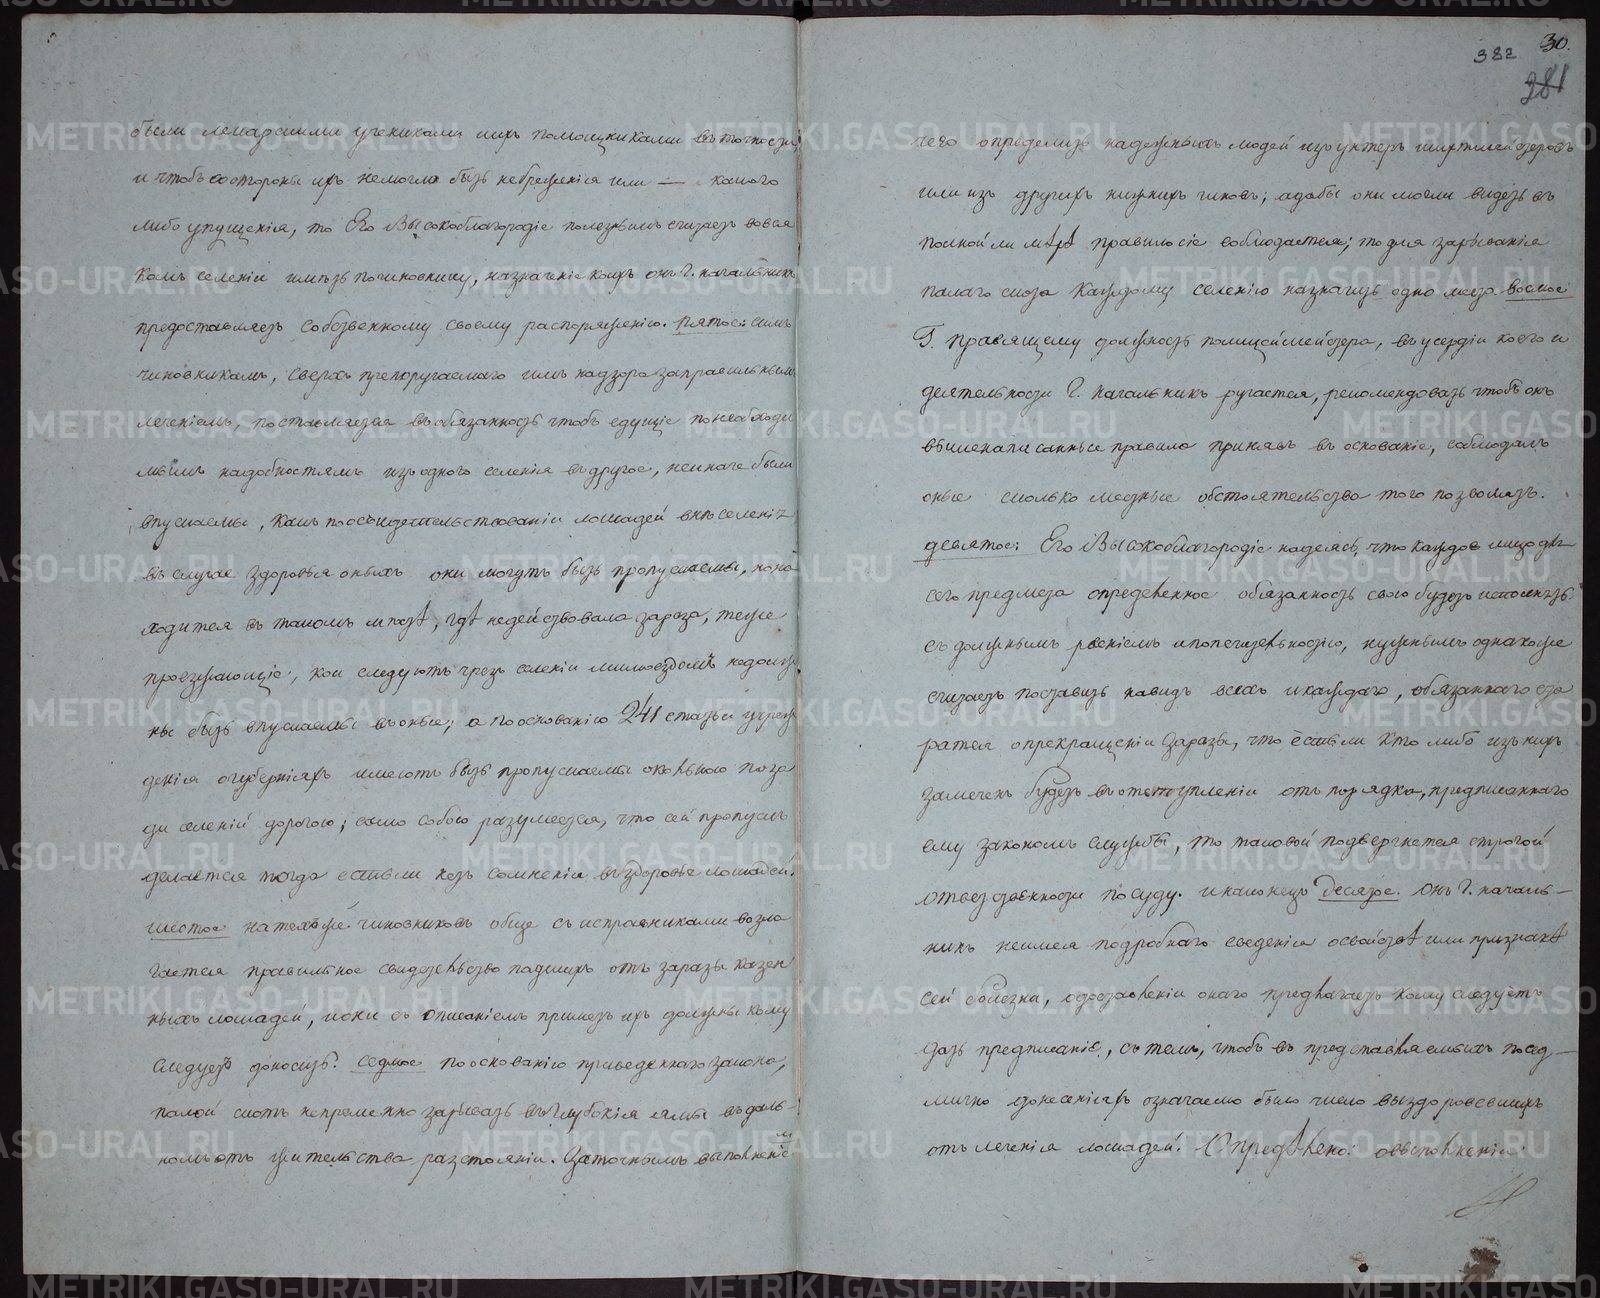 были лекарскими учениками ихъ помощниками въ точности
и чтобъ со стороны ихъ не могло быть небреженія или — какого
либо упущенія, то Его Высокоблагородіе полезнымъ считаетъ во вся
комъ селеніи иметь по чиновнику, назначеніе коихъ онъ Г. начальникъ
предоставляетъ собственному своему распоряженію. пятое: симъ
чиновникамъ, сверхъ препоручаемаго имъ надзора за правильнымъ
леченіемъ, поставляется въ обязанность чтобъ едущіе по необходи
мымъ надобностямъ изъ одного селенія въ другое, не иначе были
впускаемы, какъ по освидетельствованіи лошадей внѣ селенія
въ случае здоровья оныхъ они могутъ быть пропускаемы, но на
ходится въ такомъ мѣстѣ, гдѣ не действовала зараза, те же
проезжающіе, кои следуютъ чрезъ селеніи мимоездомъ не долж
ны быть впускаемы въ оные; а по основанію 241 статьи учреж
денія о губерніяхъ имеютъ быть пропускаемы окольною поза
ди селеній дорогою; само собою разумеется, что сей пропускъ
делается тогда естьли нетъ сомненія въ здоровье лошадей.
шестое на техъ же чиновниковъ обще съ исправниками возла
гается правильное свидетельство падшихъ отъ заразы казен
ныхъ лошадей, и они съ описаніемъ приметъ ихъ должны кому
следуетъ доносить. седмое по основанію приведеннаго закона,
палой скотъ непременно зарывать въ глубокія ямы въ даль-
номъ отъ жительства разстояніи. За точнымъ выполнені
METRIKI.GASO-URAL.RU
382
30.
281
чего определить надежныхъ людей изъ унтеръ шихтмейстеровъ
или изъ другихъ нижнихъ чиновъ; а дабы они могли видеть въ
полной ли мѣрѣ правило сіе соблюдается; то для зарыванія
палаго скота каждому селенію назначить одно место восмое
Г. правящему должность полицеймейстера, въ усердіи коего и
деятельности Г. начальникъ ручается, рекомендовать чтобъ онъ
вышенаписанные правила принявъ въ основаніе, соблюдалъ
оные сколько местные обстоятельства того позволятъ.
девятое: Его Высокоблагородіе надеясь, что каждое лицо для
сего предмета определенное обязанность свою будетъ исполнять
съ должнымъ рвеніемъ и попечительностію, нужнымъ однакоже
считаетъ поставить на видъ всехъ и каждаго, обязаннаго ста
ратся о прекращеніи заразы, что естьли кто либо изъ нихъ
замеченъ будетъ въ отступленіи отъ порядка, предписаннаго
ему закономъ службы, то таковой подвергнется строгой
ответственности по суду. и наконецъ десятое. Онъ Г. началь-
никъ неимея подробнаго сведенія о свойствѣ или признакѣ
сей болезни, о доставленіи онаго предлагаетъ кому следуетъ
дать предписаніе, съ темъ, чтобъ въ представляемыхъ
донесеніяхъ означаемо было число выздоровевшихъ
отъ леченія лошадей. Опредѣлено: о выполненіи